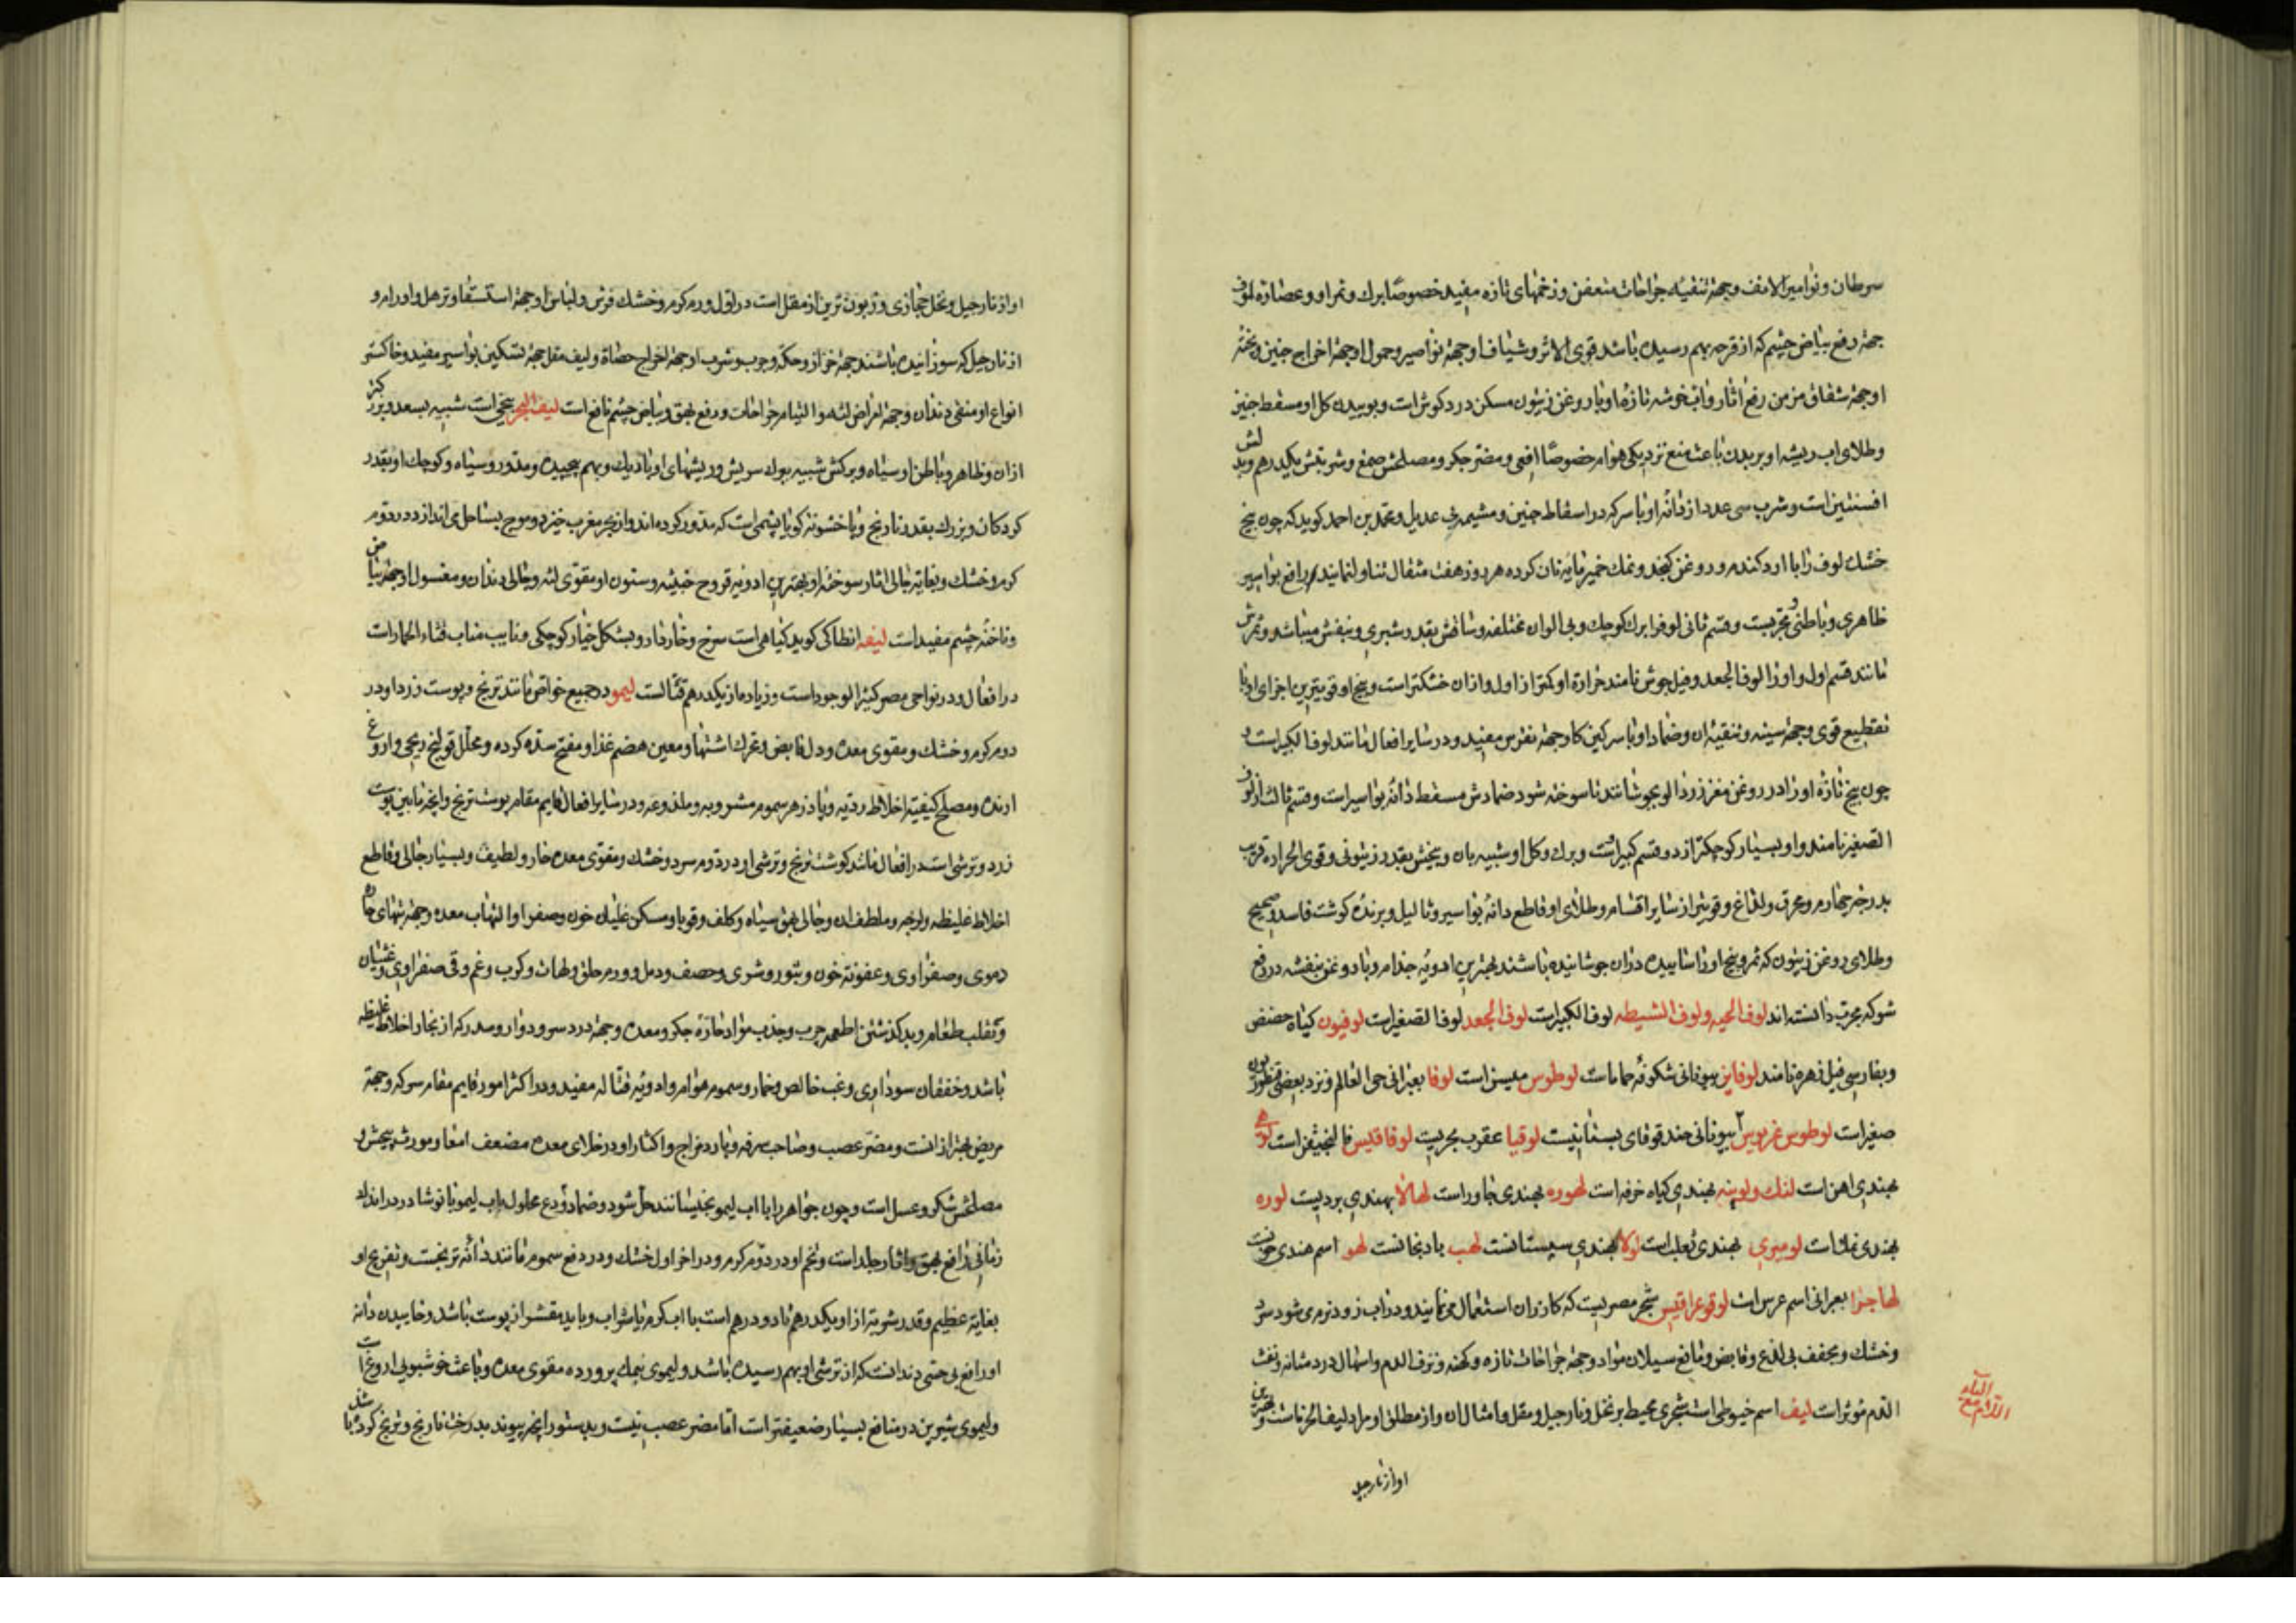 سرطان و نوامیر الانف و جهة تنقیه جراحات متعفن و زخمهای تازه مفید خصوصاً برك و ثمر او و عصارۀ لوف
جهة رفع بیاض چشم که از قرحه بهم رسیده باشد قوی الاثر و شیاف او جهة نواصیر و حمول او جهة اخراج جنین و پختۀ
او جهة شقاق مزمن رفع آثار و آب خوشه تازه او با روغن زیتون مسکن درد کوش است و بوییدن کل او مسقط جنین
و طلای اب ریشه او بر بدن باعث منع نزدیکی هوام خصوصاً افعی و مضر جکر و مصلحش صمغ و شربتش یکدرهم و بدلش
افسنتین است و شرب سی عدد از دانۀ او با سرکه در اسقاط جنین و مشیمه بی عدیل و محمد بن احمد کوید که چون بیخ
خشك لوف را با ارد کندم و روغن کنجد و نمك خمیر مایه نان کرده هر روز هفت مثقال تناول نمایند رافع بواسیر
ظاهری و باطنی و مجربست و قسم ثانی لوف را برك کوچك و بی الوان مختلفه و ساقش بقدر شبری و بنفش میباشد و ثمرش
مانند قسم اول و او را لوف الجعد و فیل جوش نامند حرارة او کمتر از اول و از ان خشکتر است و بیخ او قویترین اجزای او با
تقطیع قوی و جهة سینه و تنقیۀ ان و ضماد او با سرکین کاو جهة نقرس مفید و در سایر افعال مانند لوف الکبیر است و
چون بیخ تازۀ او را در روغن مغز زردالو بجوشانند تا سوخته شود ضمادش مسقط دانۀ بواسیر است و قسم ثالث را لوف
الصغیر نامند و او بسیار کوچکتر از دو قسم کبیر است و برك و کل او شبیه بان و بیخش بقدر زیتونی و قوی الحراره قریب
بدرجۀ چهارم و محرق و لذاغ و قویتر از سایر اقسام و طلای او قاطع دانۀ بواسیر و ثالیل و برندۀ کوشت فاسد و صحیح
و طلای روغن زیتون که ثمر و بیخ او را ساییده در ان جوشانیده باشند بهترین ادویۀ جذام و با روغن بنفشه در رفع
شوکه مجرب دانسته اند لوف الحیه و لوف السبطه لوف الکبیر است لوف الجعد لوف الصغیر است لوفیون کیاه حضض
و بفارسی فیل زهره نامند لوفاین بیونانی شکوفۀ حماما است لوطوس میس است لوفا بعبرانی حی العالم و نزد بعضی قنطوریون
صغیر است لوطوس غریوس بیونانی حندقوقای بستانیست لوقیا عقرب بحریست لوفاقلیس فالنجیقن است لوه
بهندی اهن است لنك و لوینه بهندی کیاه خرفه است لهوره بهندی جاورس است لهالا بهندی بردیست لوره
بهندی نمك است لومیری بهندی ثعلب است لولا بهندی سپستانست لهب بادنجانست لهو اسم هندی خونست
لهاجرا بعبرانی اسم عرس است لوقوغرافیس حجر مصریست که کازران استعمال می نمایند و در اب زود نرم می شود سرد
و خشك و مجفف بی لذع و قابض و مانع سیلان مواد و جهة جراحات تازه و کهنه و نزف الدم و اسهال و درد مثانه و نفث
الدم مؤثر است لیف اسم خیوطی است شجری محیط بر نخل و نارجیل و مقل و امثال ان و از مطلق او مراد لیف الخرماست و بهترین
اللام مع الیاء
او از نارجیل
او از نارجیل و نخل حجازی و زبون ترین از مقل است در اول و دوم کرم و خشك فرش و لباس او جهة استسقا و ترهل و اورام و
از نارجیل که سوزانیده باشند جهة خزاز و حکه و جرب و شرب او جهة اخراج حصاة و لیف مقل جهة تسکین بواسیر مفید و خاکستر
انواع او منقی دندان و جهة امراض لثه و التیام جراحات و رفع بهق و بیاض چشم نافع است لیف البحر بیخی است شبیه بسعد و بزرکتر
از ان و ظاهر و باطن او سیاه و برکش شبیه ببرك سریش و ریشهای او باریك و بهم پیچیده و مدور و سیاه و کوچك او بقدر
کردکان و بزرك بقدر نارنج و با خشونة کویا پشمی است که مدور کرده اند و از بحر مغرب خیزد و موج بساحل می اندازد در دوم
کرم و خشك و بغایة جالی اثار سوختۀ او بهترین ادویۀ قروح خبیثه و سنون او مقوی لثه و جالی دندان و مغسول او جهة بیاض
و ناخنۀ چشم مفید است لیفه انطاکی کوید کیاهی است سرخ و خاردار و بشکل خیار کوچکی و نایب مناب قثاء الحمار است
در افعال و در نواحی مصر کثیر الوجود است و زیاده از یکدرهم قتالست لیمو در جمیع خواص مانند ترنج و پوست زرد او در
دوم کرم و خشك و مقوی معده و دل قابض و محرك اشتها و معین هضم غذا و مفتح سدۀ کرده و محلل قولنج ریحی و اروغ
ارنده و مصلح کیفیة اخلاط ردیه و پادزهر سموم مشروبه و ملدوغه و در سایر افعال قایم مقام پوست ترنج و انچه مابین پوست
زرد و ترشی است در افعال مانند کوشت ترنج و ترشی او در دوم سرد و خشك و مقوی معدۀ حار و لطیف و بسیار جالی و قاطع
اخلاط غلیظه و لزجه و ملطف ان و جالی بهق سیاه و کلف و قوبا و مسکن غلیان خون و صفرا و التهاب معده و جهة تبهای حاره
دموی و صفراوی و عفونة خون و بثور و شری و حصف و دمل و ورم حلق و لهات و کرب و غم و قی صفراوی و غثیان
و تقلب طعام و بدکذشتن اطعمه چرب و جذب مواد حارۀ جکر و معده و جهة درد سر و دوار و سدر که از بخار اخلاط غلیظه
باشد و خفقان سوداوی و غب خالص و خمار و سموم هوام و ادویۀ قتاله مفید و در اکثر امور قایم مقام سرکه و جهة
مریض بهتر از انست و مضر عصب و صاحب سرفه و بارد مزاج و اکثار او در خلای معده مضعف امعا و مورث پیچش و
مصلحش شکر و عسل است و چون جواهر را با اب لیمو بخیسانند حل شود و ضماد ودع محلول باب لیمو با نوشادر در اندك
زمانی رافع بهق و اثار جلد است و تخم او در دوم کرم و در اخر اول خشك و در دفع سموم مانند دانۀ ترنجست و تفریح او
بغایة عظیم و قدر شربة از او یکدرهم تا دو درهم است با اب کرم یا شراب و باید مقشر از پوست باشد و خاییدن دانۀ
او رافع بی حسی دندانست که از ترشی او بهم رسیده باشد و لیموی بنمك پرورده مقوی معده و باعث خوشبویی اروغ است
و لیموی شیرین در منافع بسیار ضعیفتر است اما مضر عصب نیست و بدستور انچه پیوند بدرخت نارنج و ترنج کرده باشند